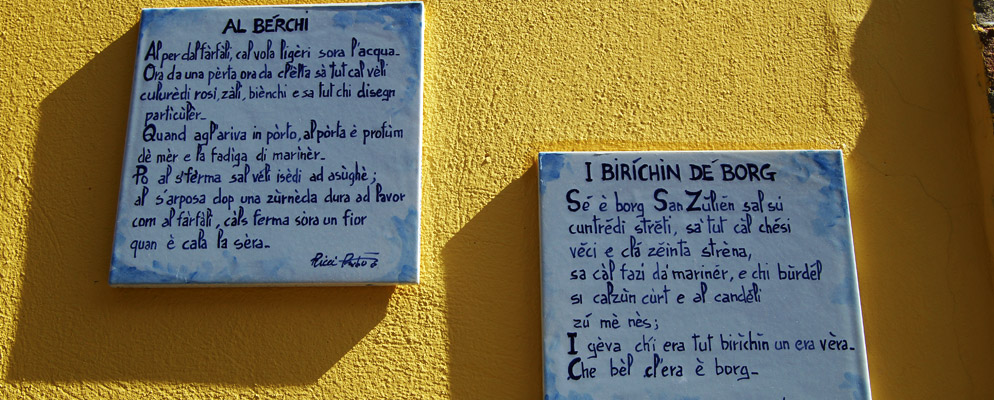 AL BÉRCHI
Al per dal fàrfàli, cal vola ligèri sora l'acqua_
Ora da una pèrta ora da cl'èlta sà tut cal vèli
culurèdi rosi, zàli, biènchi e sa tut chi disegn
particulèr_
Quand agl'ariva in pòrto, al pòrta è profùm
dè mèr e la fadìga di marinèr_
Pò al s'ferma sal vèli isèdi ad asùghè;
al s'arposa dop una zùrnèda dura ad lavor
com al fàrfàli, càls ferma sòra un fior
quan è cala la sèra_
I BIRÍCHIN DÉ BORG
Sé è borg San Zùlièn sal sù
cuntrèdi strèti, sà tut càl chèsi
vèci e clà zèinta strèna,
sa càl fazi dà marinér, e chi bùrdèl
si calzùn cùrt e al candéli
zú mè nès;
I gèva chi era tut birìchin un era vèra_
Che bèl cl'era è borg_